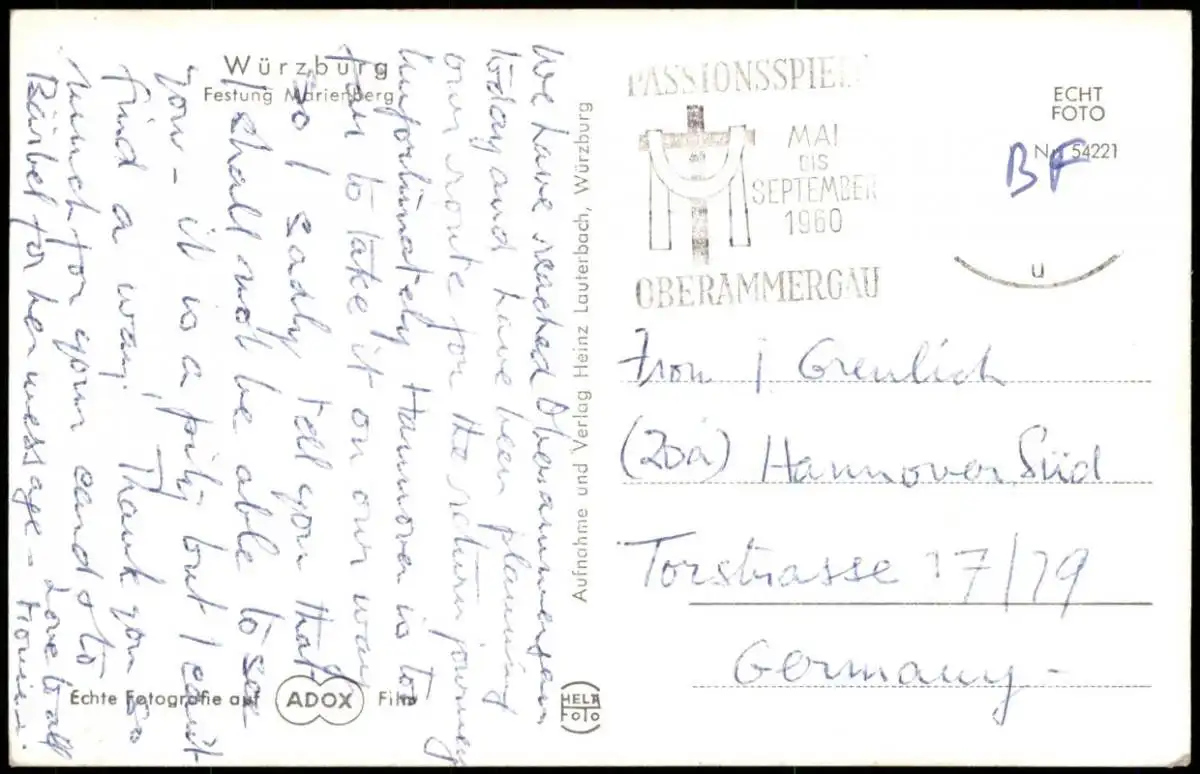 Würzburg
Festung Marienberg
We have reached Oberammergau
today and have been planning
our route for the return journey
Unfortunately Hannover is too
far to take it on our way
so I sadly tell you that
I shall not be able to see
you – it is a pity but I can't
find a way. Thank you so
much for your card & to
Bärbel for her message – Love to all
Aufnahme und Verlag Heinz Lauterbach, Würzburg
Echte Fotografie auf ADOX Film
HELA
Foto
PASSIONSSPIELE
MAI
BIS
SEPTEMBER
1960
OBERAMMERGAU
ECHT
FOTO
Nr. 54221
BF
u
Frau J Greulich
(20a) Hannover Süd
Torstrasse 17/19
Germany –